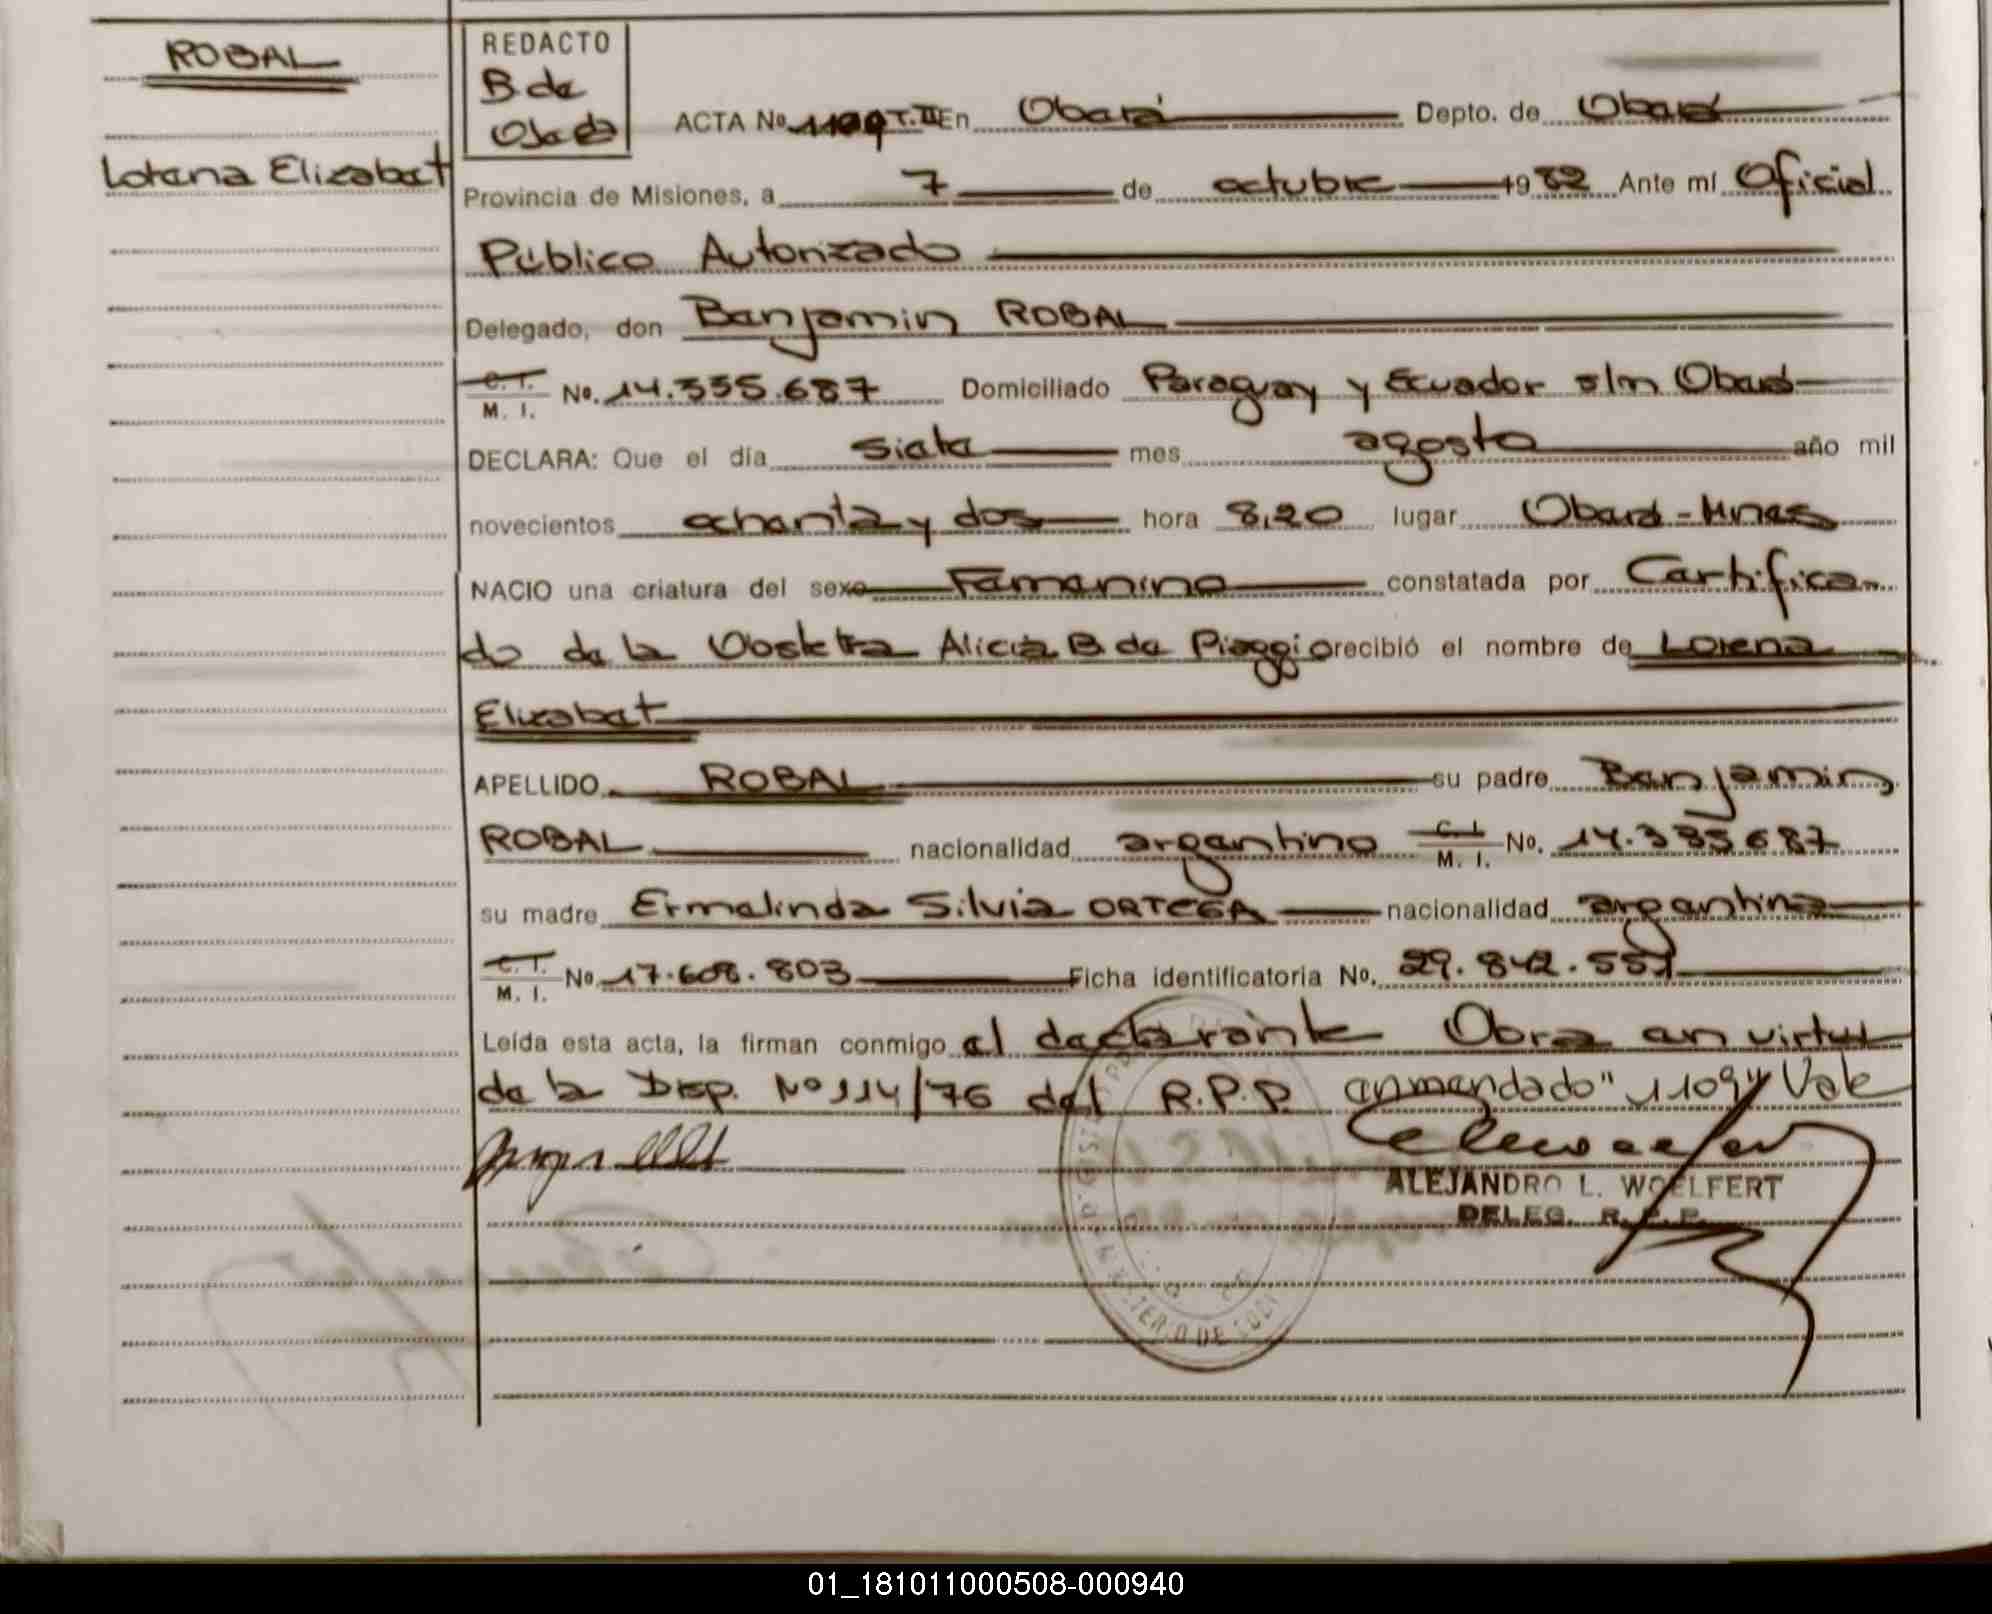 ROBAL
Lorena Elizabet
REDACTO
B de
Ojeda
ACTA No. 1109 T. II En Oberá Depto. de Oberá
Provincia de Misiones, a 7 de octubre 1982 Ante mí Oficial
Público Autorizado
Delegado, don Benjamin ROBAL
C. I. M. I. No. 14.335.687 Domiciliado Paraguay y Ecuador s/n Oberá
DECLARA: Que el día siete mes agosto año mil
novecientos ochenta y dos hora 8,20 lugar Oberá - Mnes
NACIO una criatura del sexo Femenino constatada por Certifica
do de la Obstetra Alicia B de Piaggio recibió el nombre de Lorena
Elizabet
APELLIDO ROBAL su padre Benjamin
ROBAL nacionalidad argentino C. I. M. I. No. 14.335.687
su madre Ermelinda Silvia ORTEGA nacionalidad argentina
C. I. M. I. No. 17.608.803 Ficha identificatoria No. 29.842.551
Leída esta acta, la firman conmigo el declarante Obra en virtud
de la Disp. Nº 114/76 del R.P.P. enmendado "1109" Vale
ALEJANDRO L. WOELFERT
DELEG. R.P.P.
01_181011000508-000940